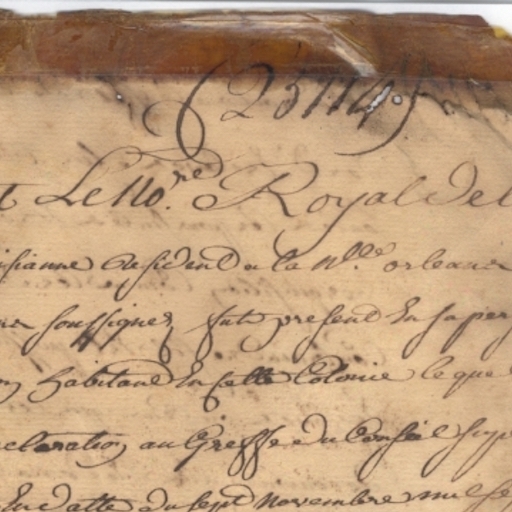 (23114)
t Le No.re Royal de l
isianne Resident a la Nlle orleans
soussignez fut present En sa per
habitant En Cette Colonie le que
eclaration au Greffe du Conseil sup
En datte du sept Novembre mil se